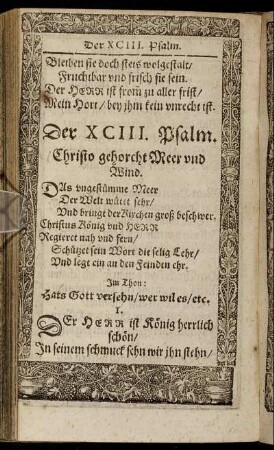 Der XCIII. Psalm.
Bleiben sie doch stets wolgestalt/
Fruchtbar vnd frisch sie sein.
Der HERR ist from zu aller frist/
Mein Hort/ bey jhm kein vnrecht ist.
Der XCIII. Psalm.
Christo gehorcht Meer vnd
Wind.
DAs vngestümme Meer
Der Welt wütet sehr/
Vnd bringt der Kirchen groß beschwer.
Christus König vnd HERR
Regieret nah vnd fern/
Schützet sein Wort die selig Lehr/
Vnd legt ein an den Feinden ehr.
Im Thon:
Hats Gott versehn/ wer wil es/ etc.
1.
DEr HERR ist König herrlich
schön/
In seinem schmuck sehn wir jhn stehn/